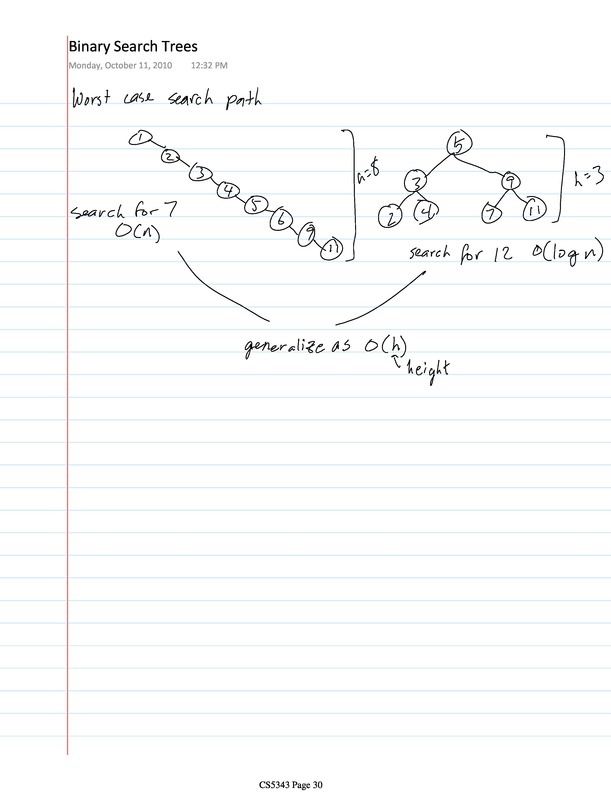 Binary Search Trees
Monday, October 11, 2010 12:32 PM
Worst case search path
1
2
3
4
5
6
9
11
n=8
search for 7
O(n)
5
3 9
2 4 7 11
h=3
search for 12 O(log n)
generalize as O(h)
height
CS5343 Page 30